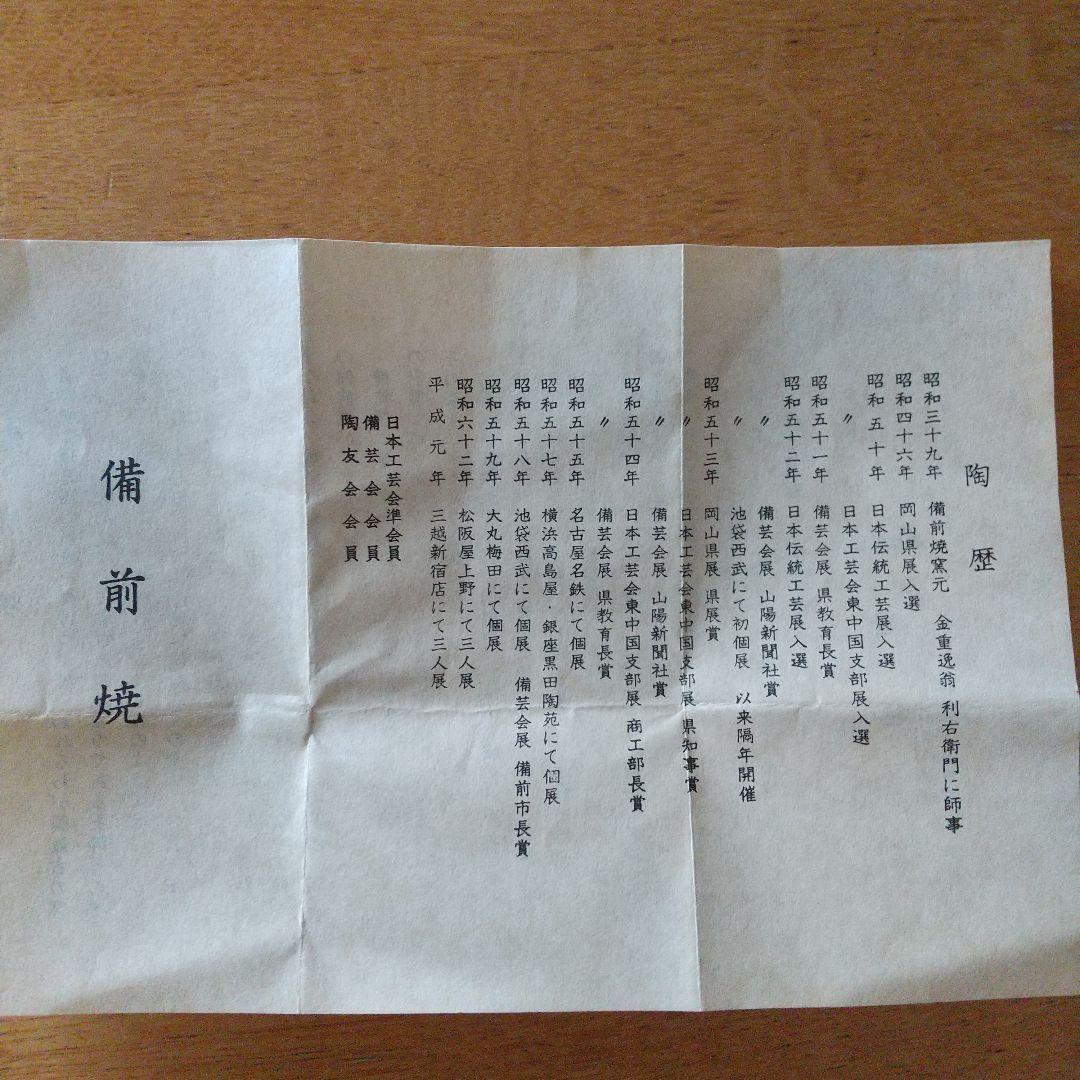 陶歴
昭和三十九年 備前焼窯元 金重逸翁 利右衛門に師事
昭和四十六年 岡山県展入選
昭和五十年 日本伝統工芸展入選
〃 日本工芸会東中国支部展入選
昭和五十一年 備芸会展 県教育長賞
昭和五十二年 日本伝統工芸展入選
〃 備芸会展 山陽新聞社賞
〃 池袋西武にて初個展 以来隔年開催
昭和五十三年 岡山県展 県展賞
〃 日本工芸会東中国支部展 県知事賞
〃 備芸会展 山陽新聞社賞
昭和五十四年 日本工芸会東中国支部展 商工部長賞
〃 備芸会展 県教育長賞
昭和五十五年 名古屋名鉄にて個展
昭和五十七年 横浜高島屋・銀座黒田陶苑にて個展
昭和五十八年 池袋西武にて個展 備芸会展 備前市長賞
昭和五十九年 大丸梅田にて個展
昭和六十二年 松阪屋上野にて三人展
平成元年 三越新宿店にて三人展
日本工芸会準会員
備芸会会員
陶友会会員
備前焼